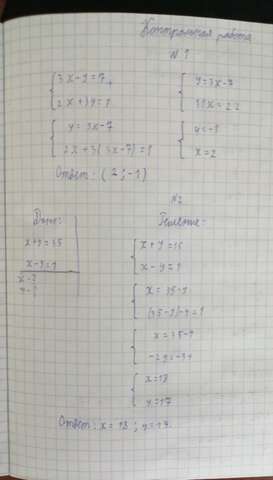 Контрольная работа
№ 1
3x - y = 7
2x + 3y = 1
y = 3x - 7
2x + 3(3x - 7) = 1
y = 3x - 7
11x = 22
y = -1
x = 2
Ответ: (2; -1)
№2
Дано:
x + y = 35
x - y = 1
x - ?
y - ?
Решение:
x + y = 35
x - y = 1
x = 35 - y
(35 - y) - y = 1
x = 35 - y
-2y = -34
x = 18
y = 17
Ответ: x = 18; y = 17.